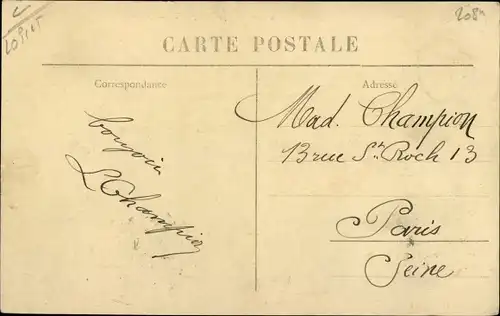 208
CARTE POSTALE
Correspondance
Adresse
L Champion
Mad. Champion
13 rue St. Roch 13
Paris
Seine